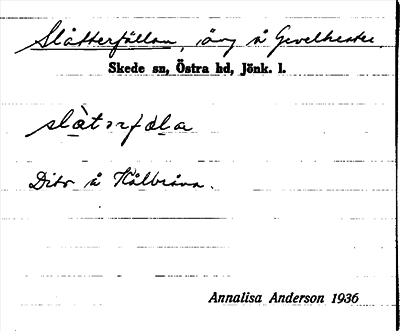 Slåtterfällan, äng å Gevelhester.
Skede sn, Östra hd, Jönk. l.
slàtərfæla
Dito å Hålbråna.
Annalisa Anderson 1936